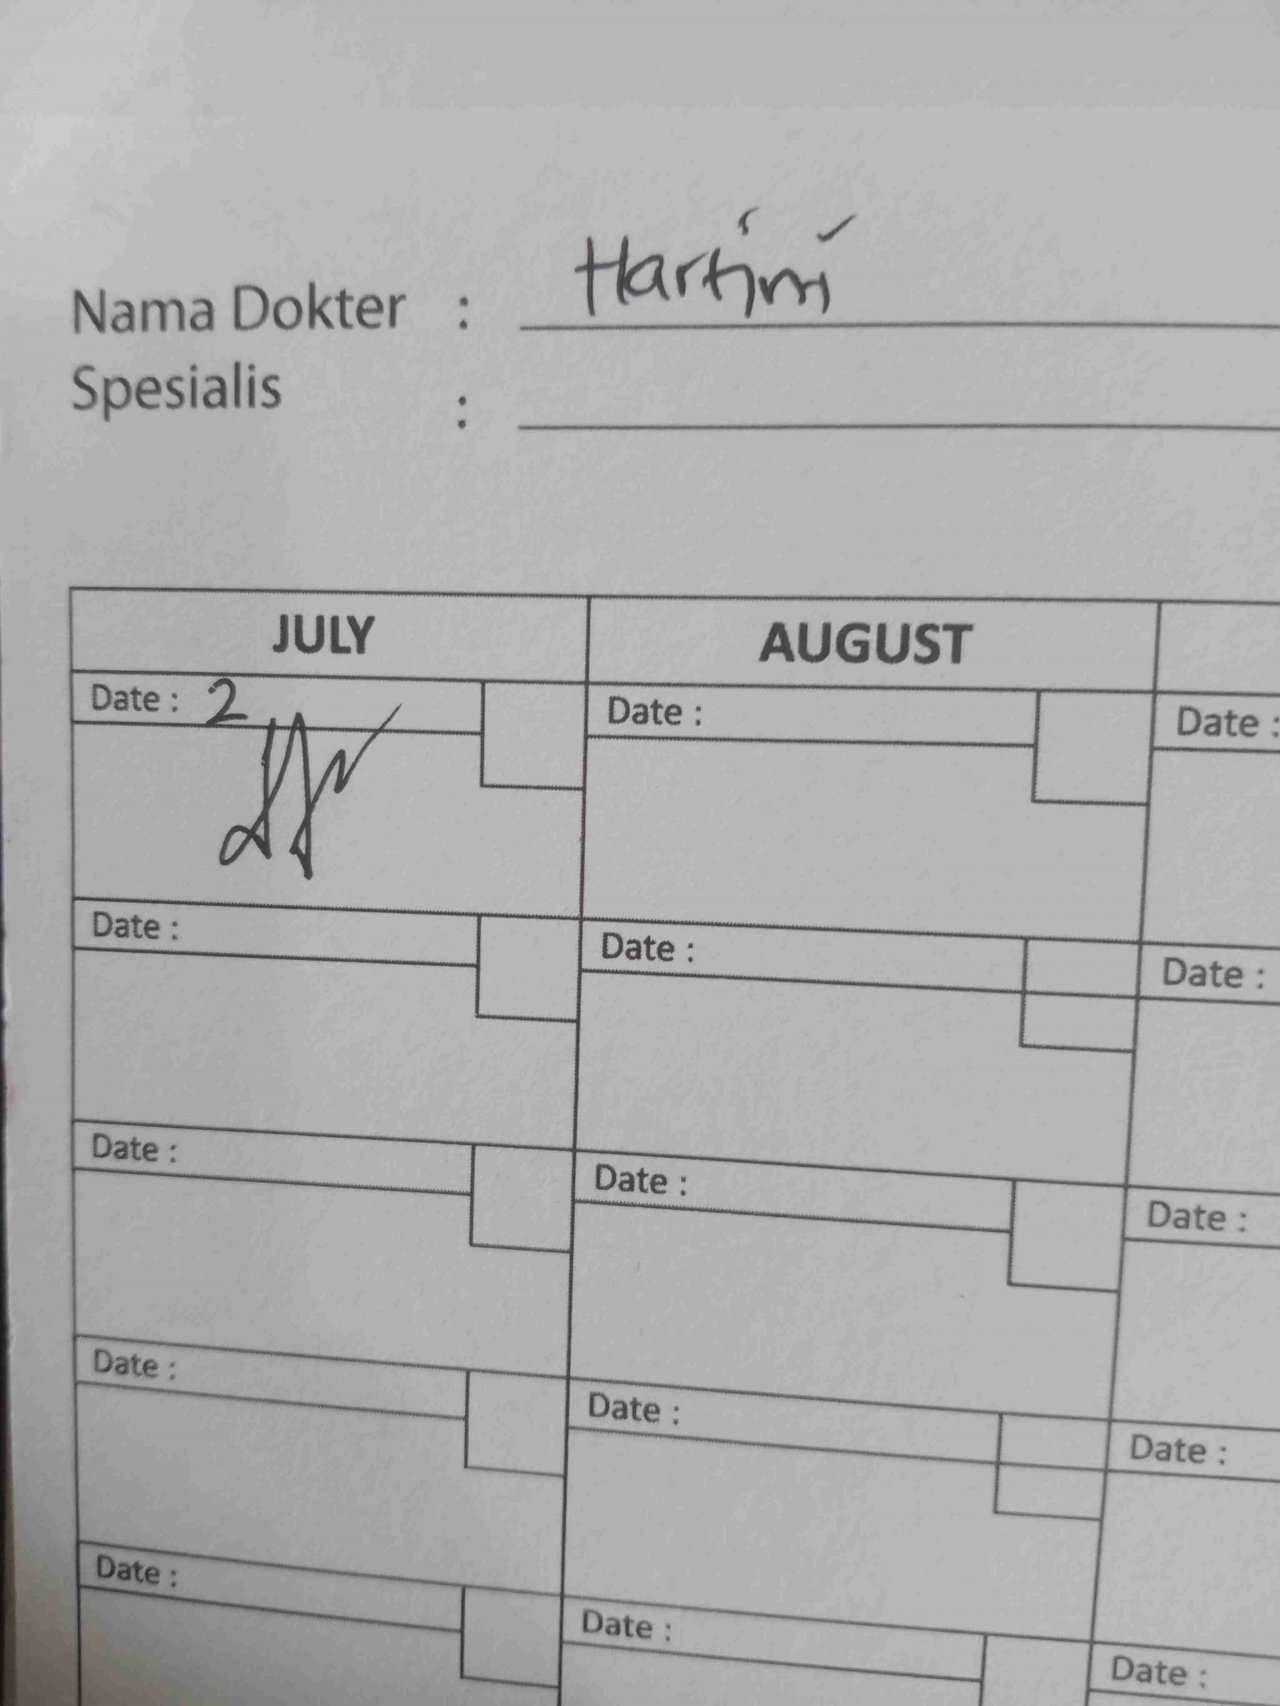 Nama Dokter : Hartini
Spesialis :
JULY AUGUST
Date : 2 Date : Date :
Date : Date : Date :
Date : Date : Date :
Date : Date : Date :
Date : Date : Date :